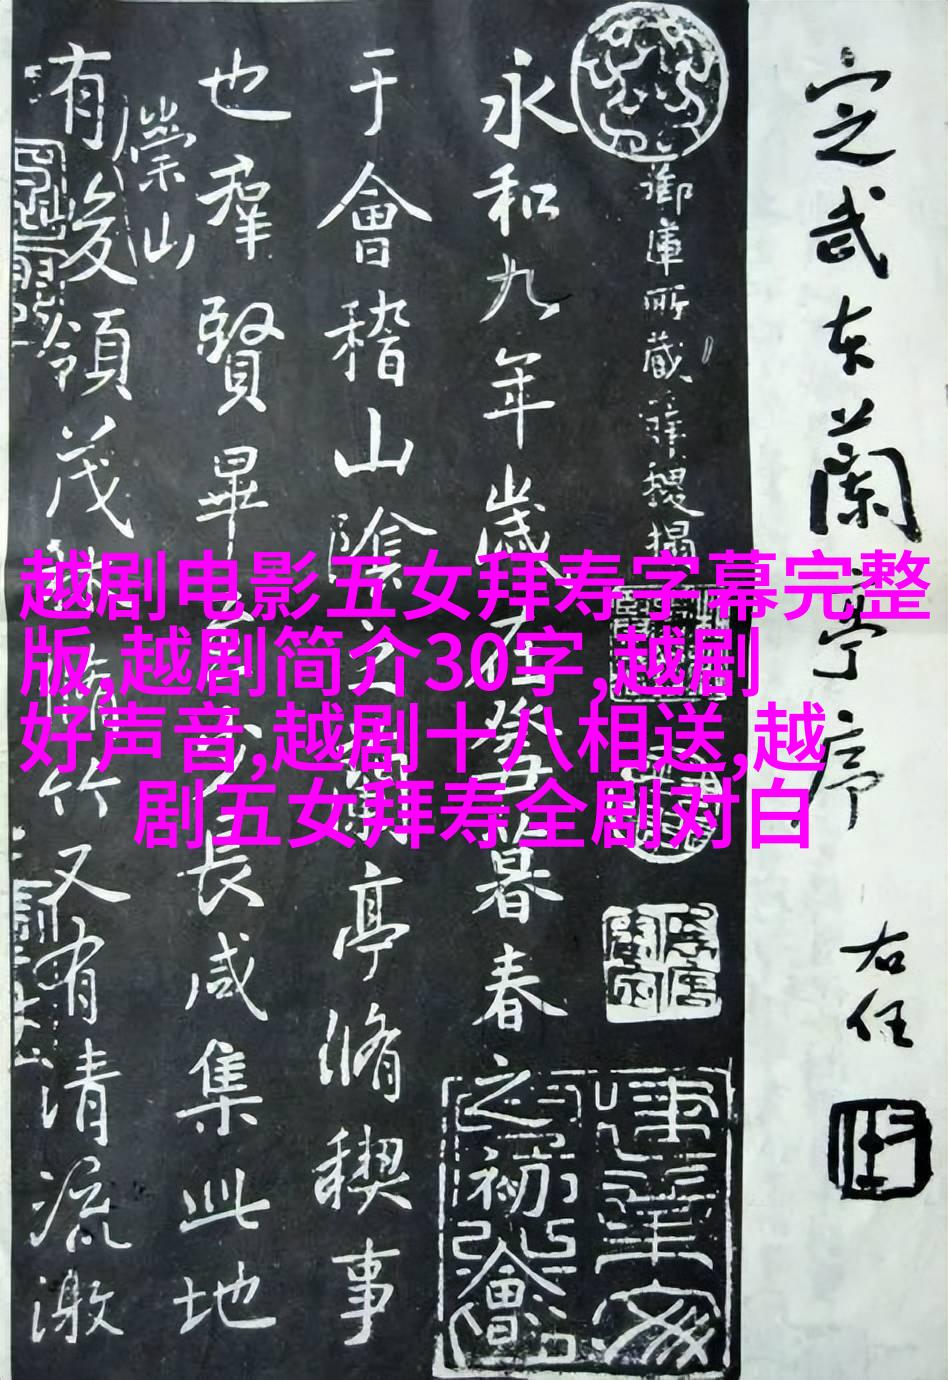 越剧电影五女拜寿字幕完整
版,越剧简介30字,越剧
好声音,越剧十八相送,越
剧五女拜寿全剧对白
定武蘭亭序
右任
御庫所藏薛稷搨
永和九年歲在癸丑暮春之初會
于會稽山陰之蘭亭脩稧事
也羣賢畢至少長咸集此地
崇山
有峻領茂林脩竹又有清流激